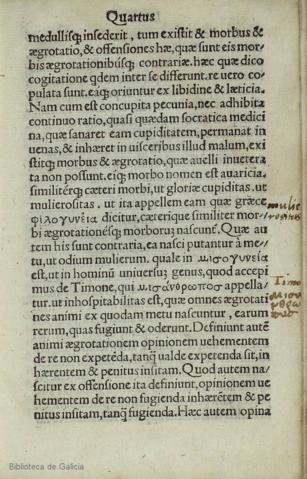 Quartus
medullisq; insederit, tum existit & morbus &
ægrotatio, & offensiones hæ, quæ sunt eis mor-
bis ægrotationibúsq; contrariæ. hæc quæ dico
cogitatione qdem inter se differunt. re uero co-
pulata sunt. eaq; oriuntur ex libidine & læticia.
Nam cum est concupita pecunia, nec adhibita
continuo ratio, quasi quædam socratica medici
na, quæ sanaret eam cupiditatem, permanat in
uenas, & inhæret in uisceribus illud malum, exi
stitq; morbus & ægrotatio, quæ auelli inuetera
ta non possunt. eiq; morbo nomen est auaricia.
similitérq; cæteri morbi, ut gloriæ cupiditas. ut
mulierositas. ut ita appellem eam quæ græce
φιλογυνεία dicitur, cæterique similiter mor-
bi ægrotationésq; morborum nascunt. Quæ au
tem his sunt contraria, ea nasci putantur à me-
tu, ut odium mulierum. quale in μισογυνεία
est, ut in hominũ uniuersũ genus, quod accepi
mus de Timone, qui μισάνθρωπος appella-
tur. ut inhospitabilitas est, quæ omnes ægrotati
nes animi ex quodam metu nascuntur, earum
rerum, quas fugiunt & oderunt. Definiunt autẽ
animi ægrotationem opinionem uehementem
de re non expetẽda, tanq̃ ualde expetenda sit, in
hærentem & penitus insitam. Quod autem na-
scitur ex offensione ita definiunt, opinionem ue
hementem de re non fugienda inhærẽtem & pe
nitus insitam, tanq̃ fugienda. Hæc autem opina
mulie
rositas
Timo
μισα
νθρω
πος
Biblioteca de Galicia